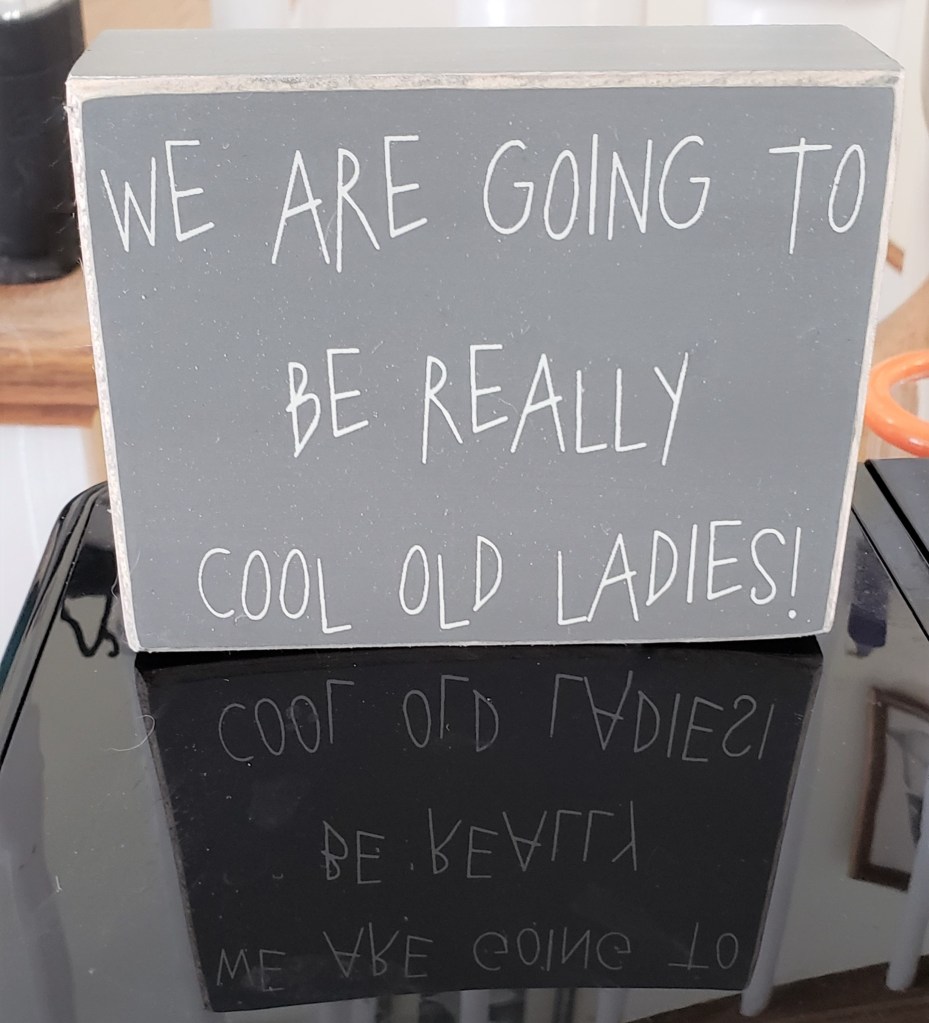 WE ARE GOING TO
BE REALLY
COOL OLD LADIES!